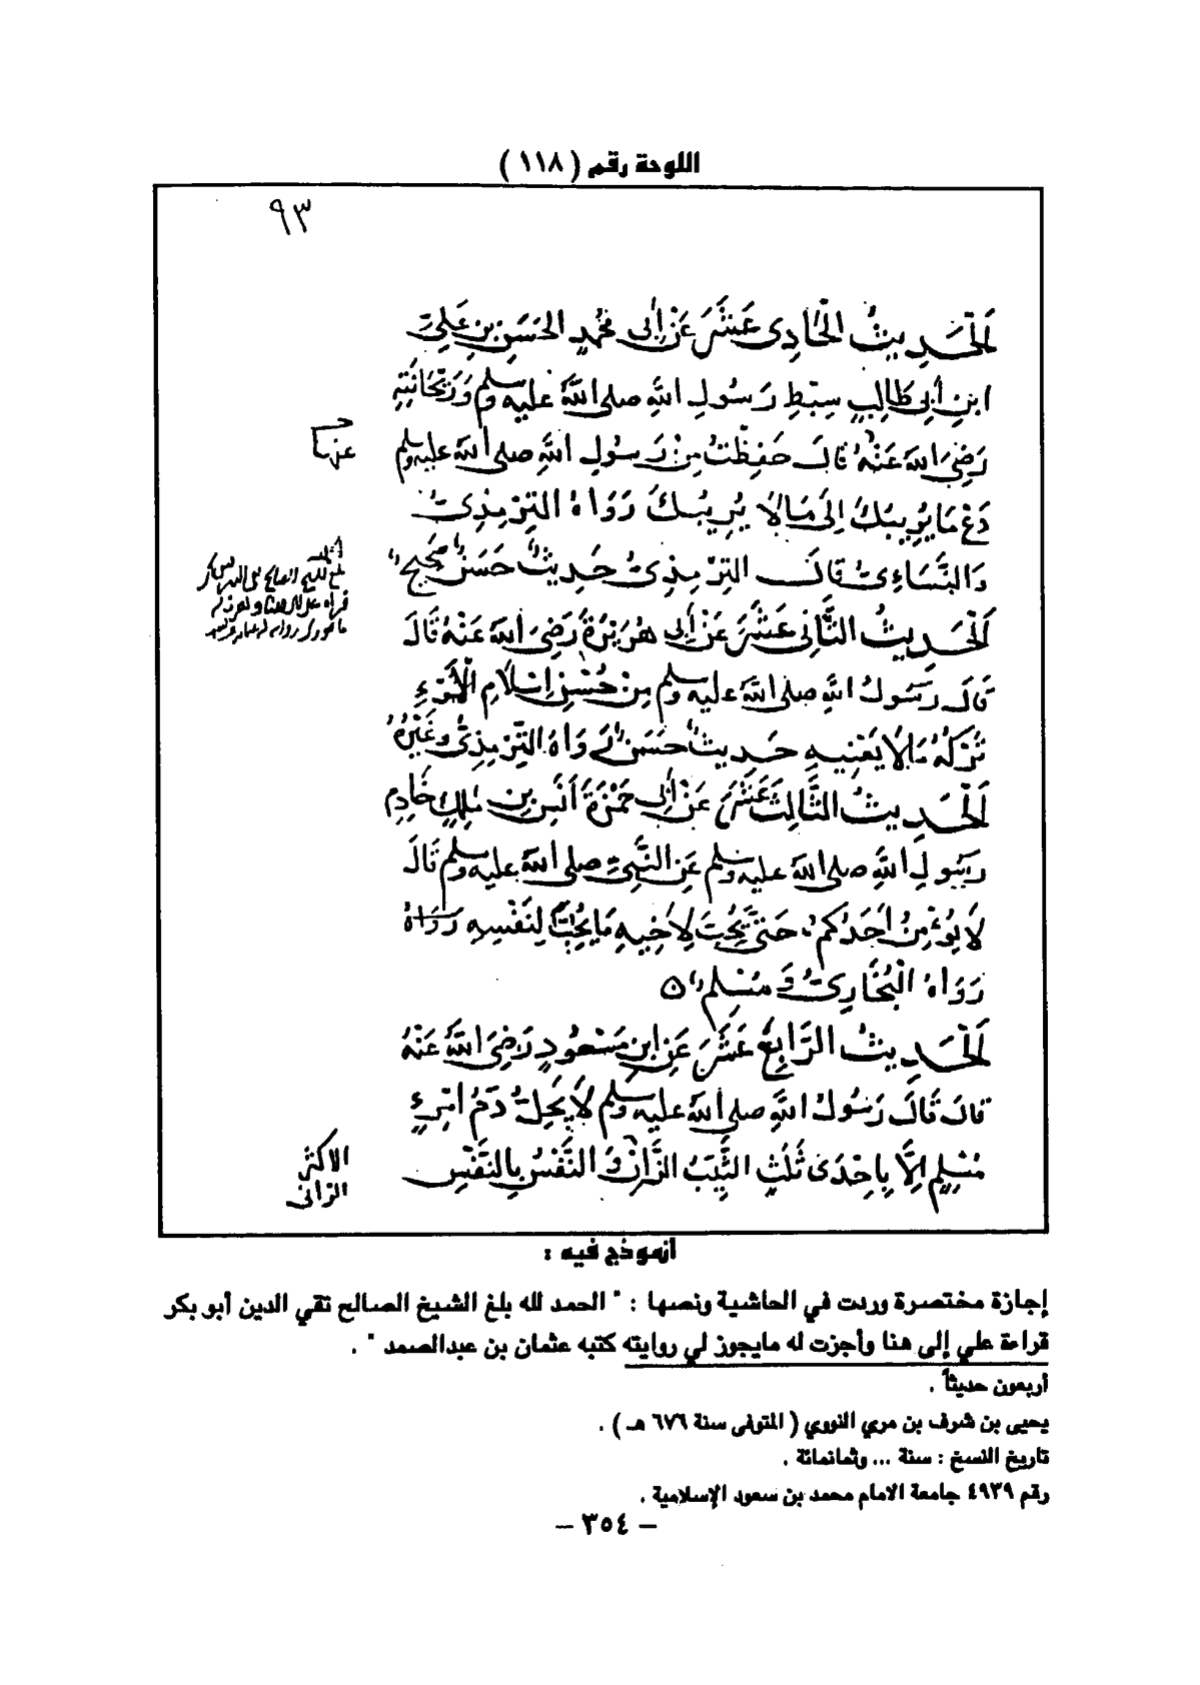 اللوحة رقم ( ١١٨ )
٩٣
اَلْحَدِيثُ الْحَادِى عَشَرَ عَنْ اَبِى مُحَمَّدٍ الْحَسَنِ بنِ عَلِىِّ
ابنِ أَبِى طَالِبٍ سِبْطِ رَسُولِ اللهِ صلى اللهُ عليه وسلم وَرَيْحَانَتِهِ
رَضِىَ اللهُ عَنْهُ قَالَ حَفِظْتُ مِنْ رَسُولِ اللهِ صلى اللهُ عليه وسلم
عنهما
دَعْ مَا يُرِيبُكَ إِلَى مَا لَا يُرِيبُكَ رَوَاهُ التِرْمِذِىُّ
وَالنَّسَاءِىُّ قَالَ التِرْمِذِىُّ حَدِيثٌ حَسَنٌ صَحِيحٌ
اَلْحَدِيثُ الثَّانِى عَشَرَ عَنْ اَبِى هُرَيْرَةَ رَضِىَ اللهُ عَنْهُ قَالَ
قَالَ رَسُولُ اللهِ صلى اللهُ عليه وسلم مِنْ حُسْنِ اِسْلَامِ الْمَرْءِ
تَرْكُهُ مَا لَا يَعْنِيهِ حَدِيثٌ حَسَنٌ رَوَاهُ التِّرْمِذِىُّ وَغَيْرُهُ
اَلْحَدِيثُ الثَّالِثَ عَشَرَ عَنْ اَبِى حَمْزَةَ أَنَسِ بنِ مٰلِكٍ خَادِمِ
رَسُولِ اللهِ صلى اللهُ عليه وسلم عَنِ النَّبِىِّ صلى اللهُ عليه وسلم قَالَ
لَا يُوءْمِنُ اَحَدُكُمْ حَتَّى يُحِبَّ لِاَخِيهِ مَا يُحِبُّ لِنَفْسِهِ رَوَاهُ
رَوَاهُ الْبُخَارِىُّ وَ مُسْلِمٌ ٥
اَلْحَدِيثُ الرَّابِعُ عَشَرَ عَنِ ابنِ مَسْعُودٍ رَضِىَ اللهُ عَنْهُ
قَالَ قَالَ رَسُولُ اللهِ صلى اللهُ عليه وسلم لَا يَحِلُّ دَمُ امْرِءٍ
مُسْلِمٍ اِلَّا بِاِحْدَى ثَلٰثٍ الثَّيِّبُ الزَّانِ وَ النَّفْسُ بِالنَّفْسِ
الاكثر
الزانى
أنموذج فيه :
إجازة مختصرة وردت في الحاشية ونصها : " الحمد لله بلغ الشيخ الصالح تقي الدين أبو بكر
قراءة علي إلى هنا وأجزت له مايجوز لي روايته كتبه عثمان بن عبدالصمد " .
أربعون حديثاً .
يحيى بن شرف بن مري النووي ( المتوفى سنة ٦٧٦ هـ ) .
تاريخ النسخ : سنة ... وثمانمائة .
رقم ٤٩٣٩ جامعة الامام محمد بن سعود الإسلامية .
– ٣٥٤ –